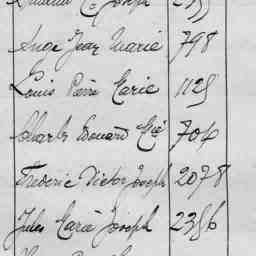 Joseph
Ange Jean Marie 798
Louis Pierre Marie 1125
Charles Edouard Mie 704
Frédéric Victor Joseph 2078
Jules Marie Joseph 2356